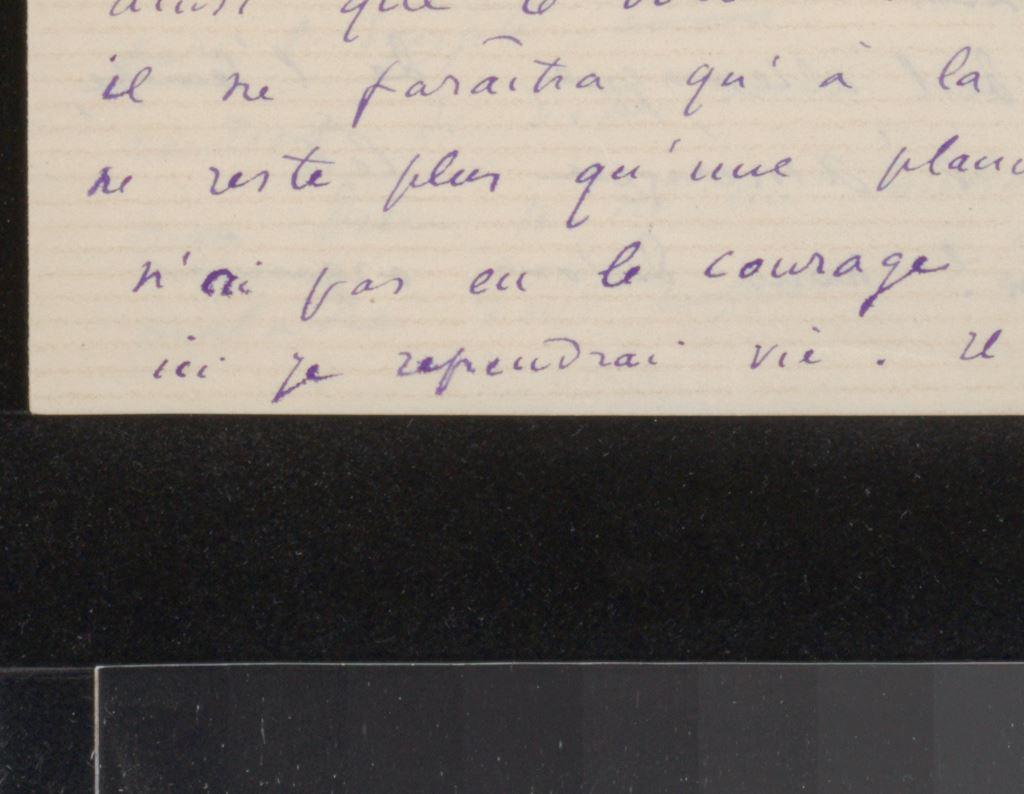 ainsi que le
il ne paraîtra qu'à la
ne reste plus qu'une planc
n'ai pas eu le courage
ici je reprendrai vie. Il